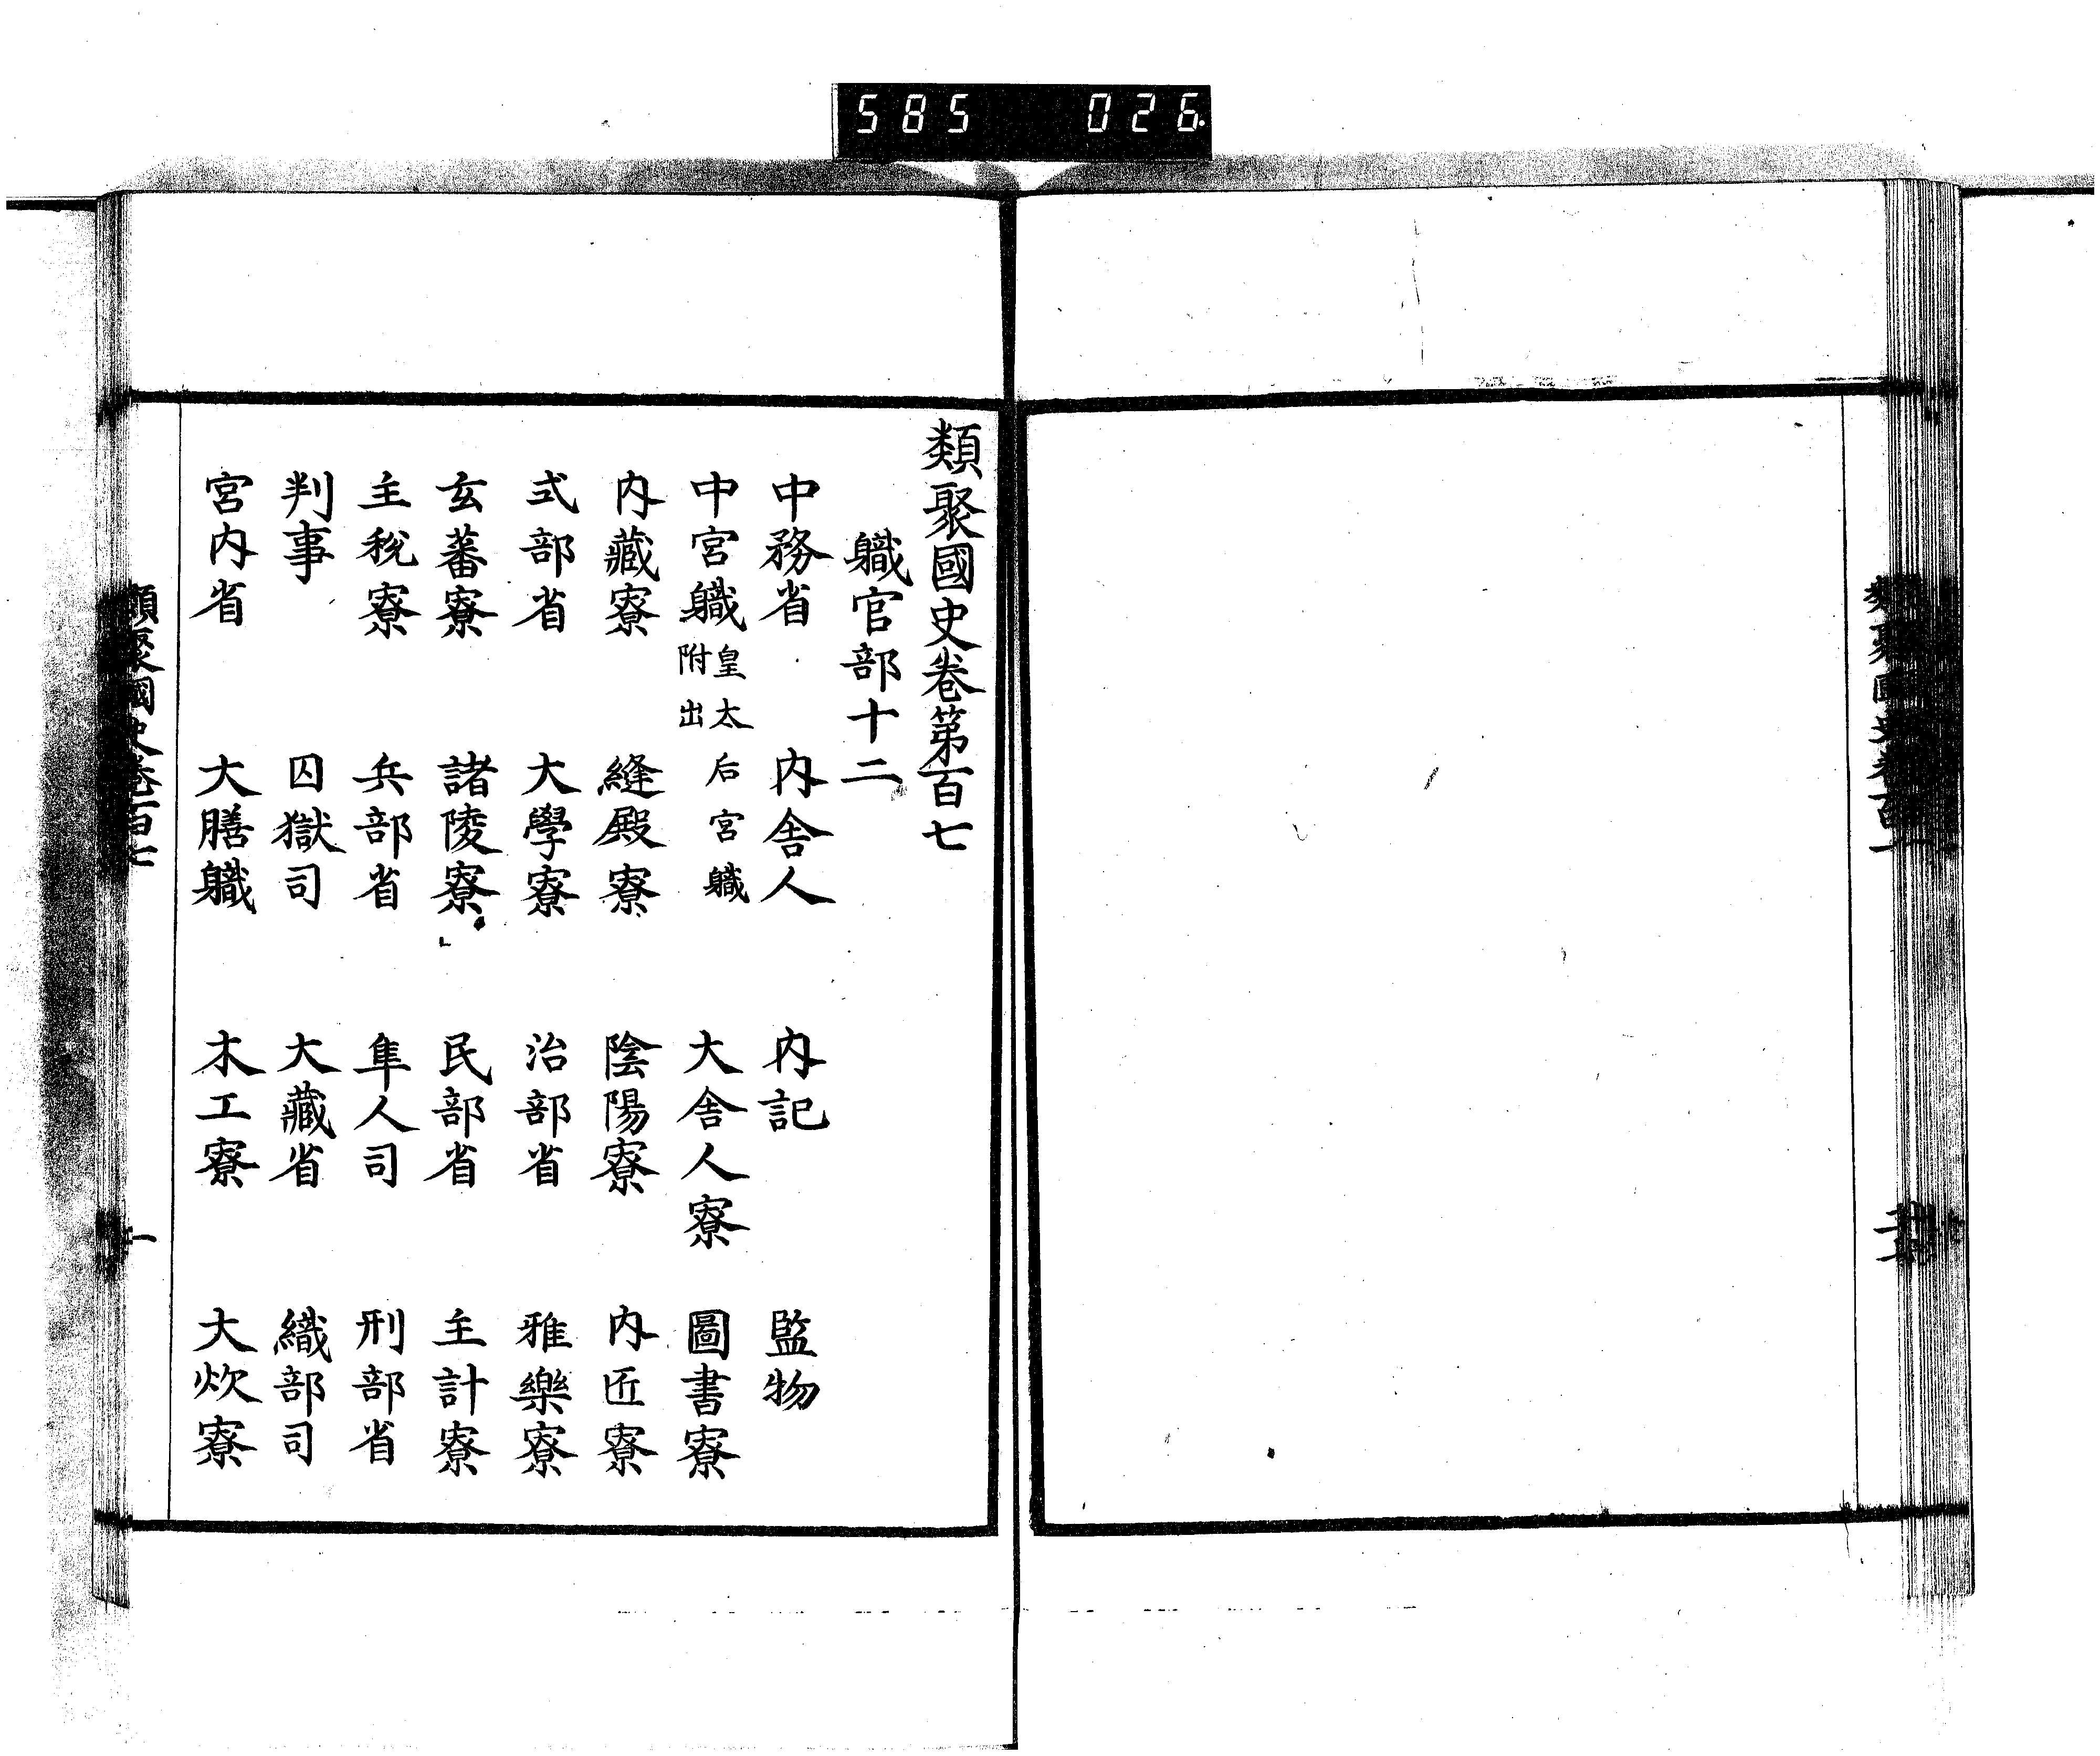 585 026
類聚國史卷第百七
軄官部十二
中務省 内舍人 内記 監物
中宮軄 皇太后宮軄附出 大舍人寮 圖書寮
内藏寮 縫殿寮 陰陽寮 内匠寮
式部省 大學寮 治部省 雅樂寮
玄蕃寮 諸陵寮 民部省 主計寮
主稅寮 兵部省 隼人司 刑部省
判事 囚獄司 大藏省 織部司
宮内省 大膳軄 木工寮 大炊寮
類聚國史卷百七 一